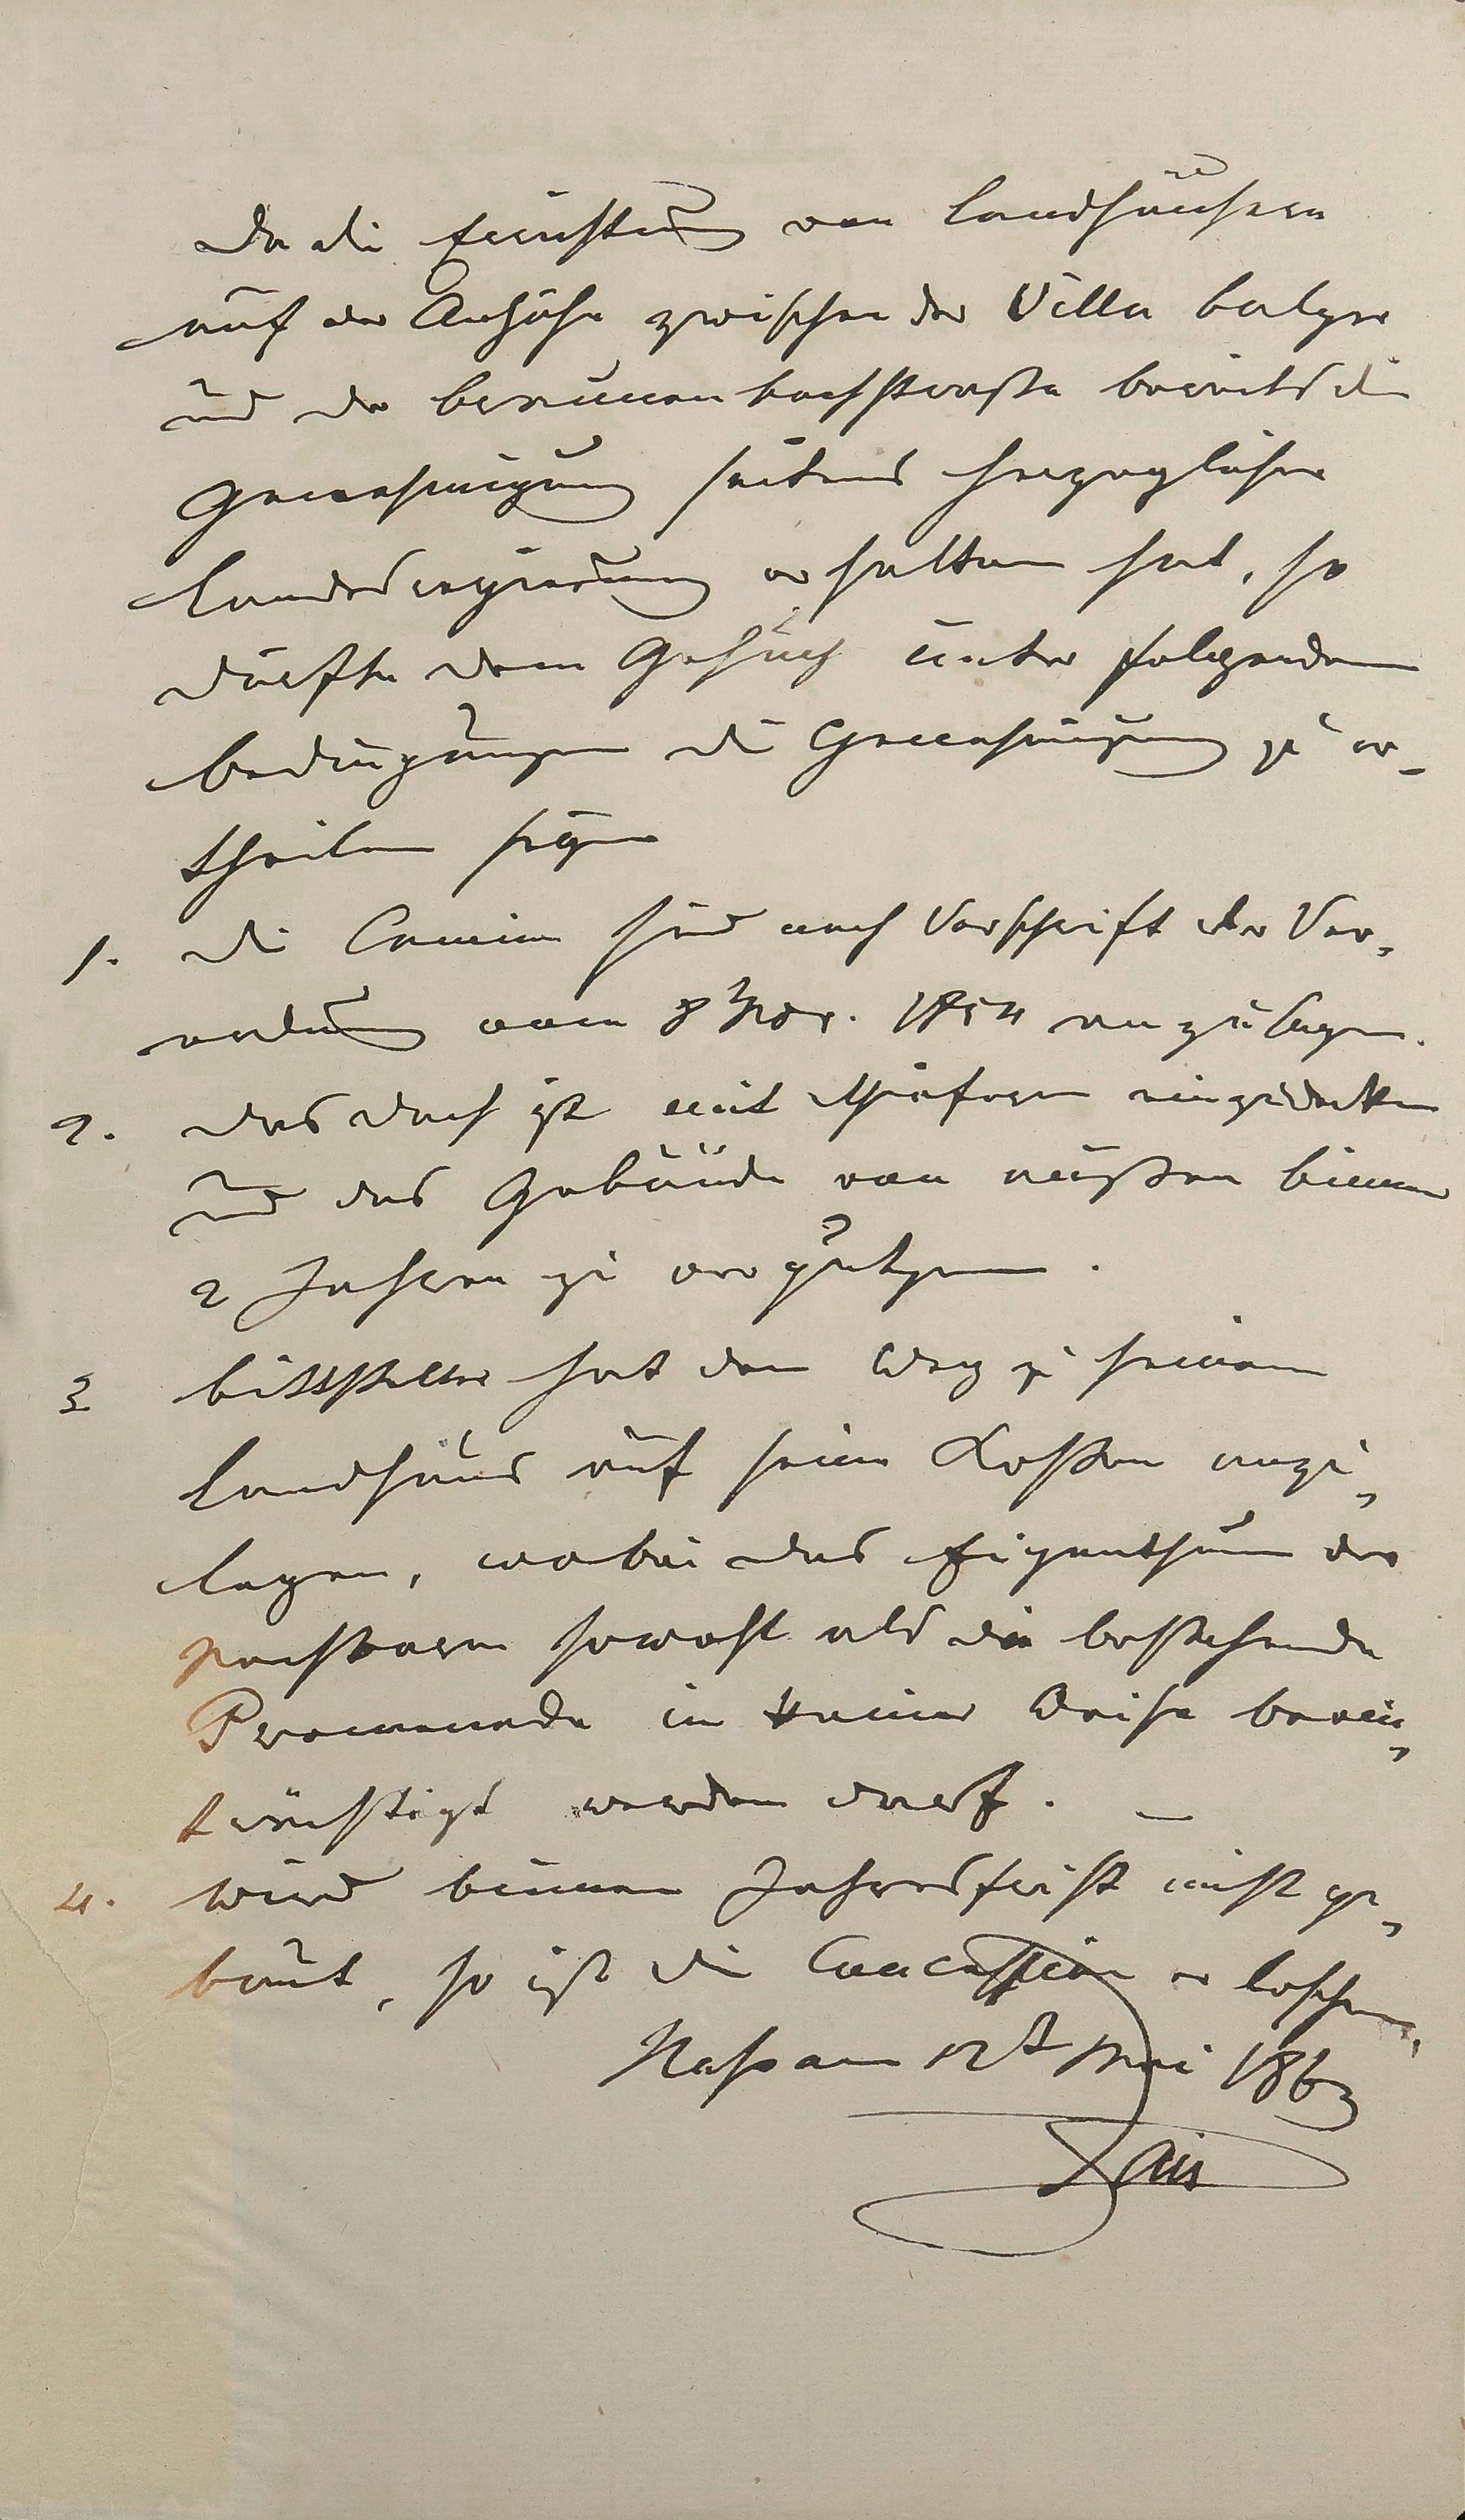 Da die Errichtung von Landhäusern
auf der Anhöhe zwischen der Villa
und der Brunnenbachstraße bereits die
Genehmigung seitens Herzoglicher
Landesregierung erhalten hat, so
dürfte dem Gesuch unter folgenden
Bedingungen die Genehmigung zu er-
theilen seyn
1. Die Camine sind nach Vorschrift der Ver-
ordnung vom 8 1854 anzulegen.
2. Das Dach ist mit Schiefern einzudecken
und das Gebäude von außen binnen
2 Jahren zu verputzen.
3 Bittsteller hat den Weg zu seinem
Landhaus auf seine Kosten anzu-
legen, wobei das Eigenthum der
sowohl als die bestehende
Promenade in keiner Weise beein-
trächtigt werden darf. —
4. Wird binnen Jahresfrist nicht ge-
baut, so ist die Concession erloschen.
Nassau 12t Mai 1863
Zais